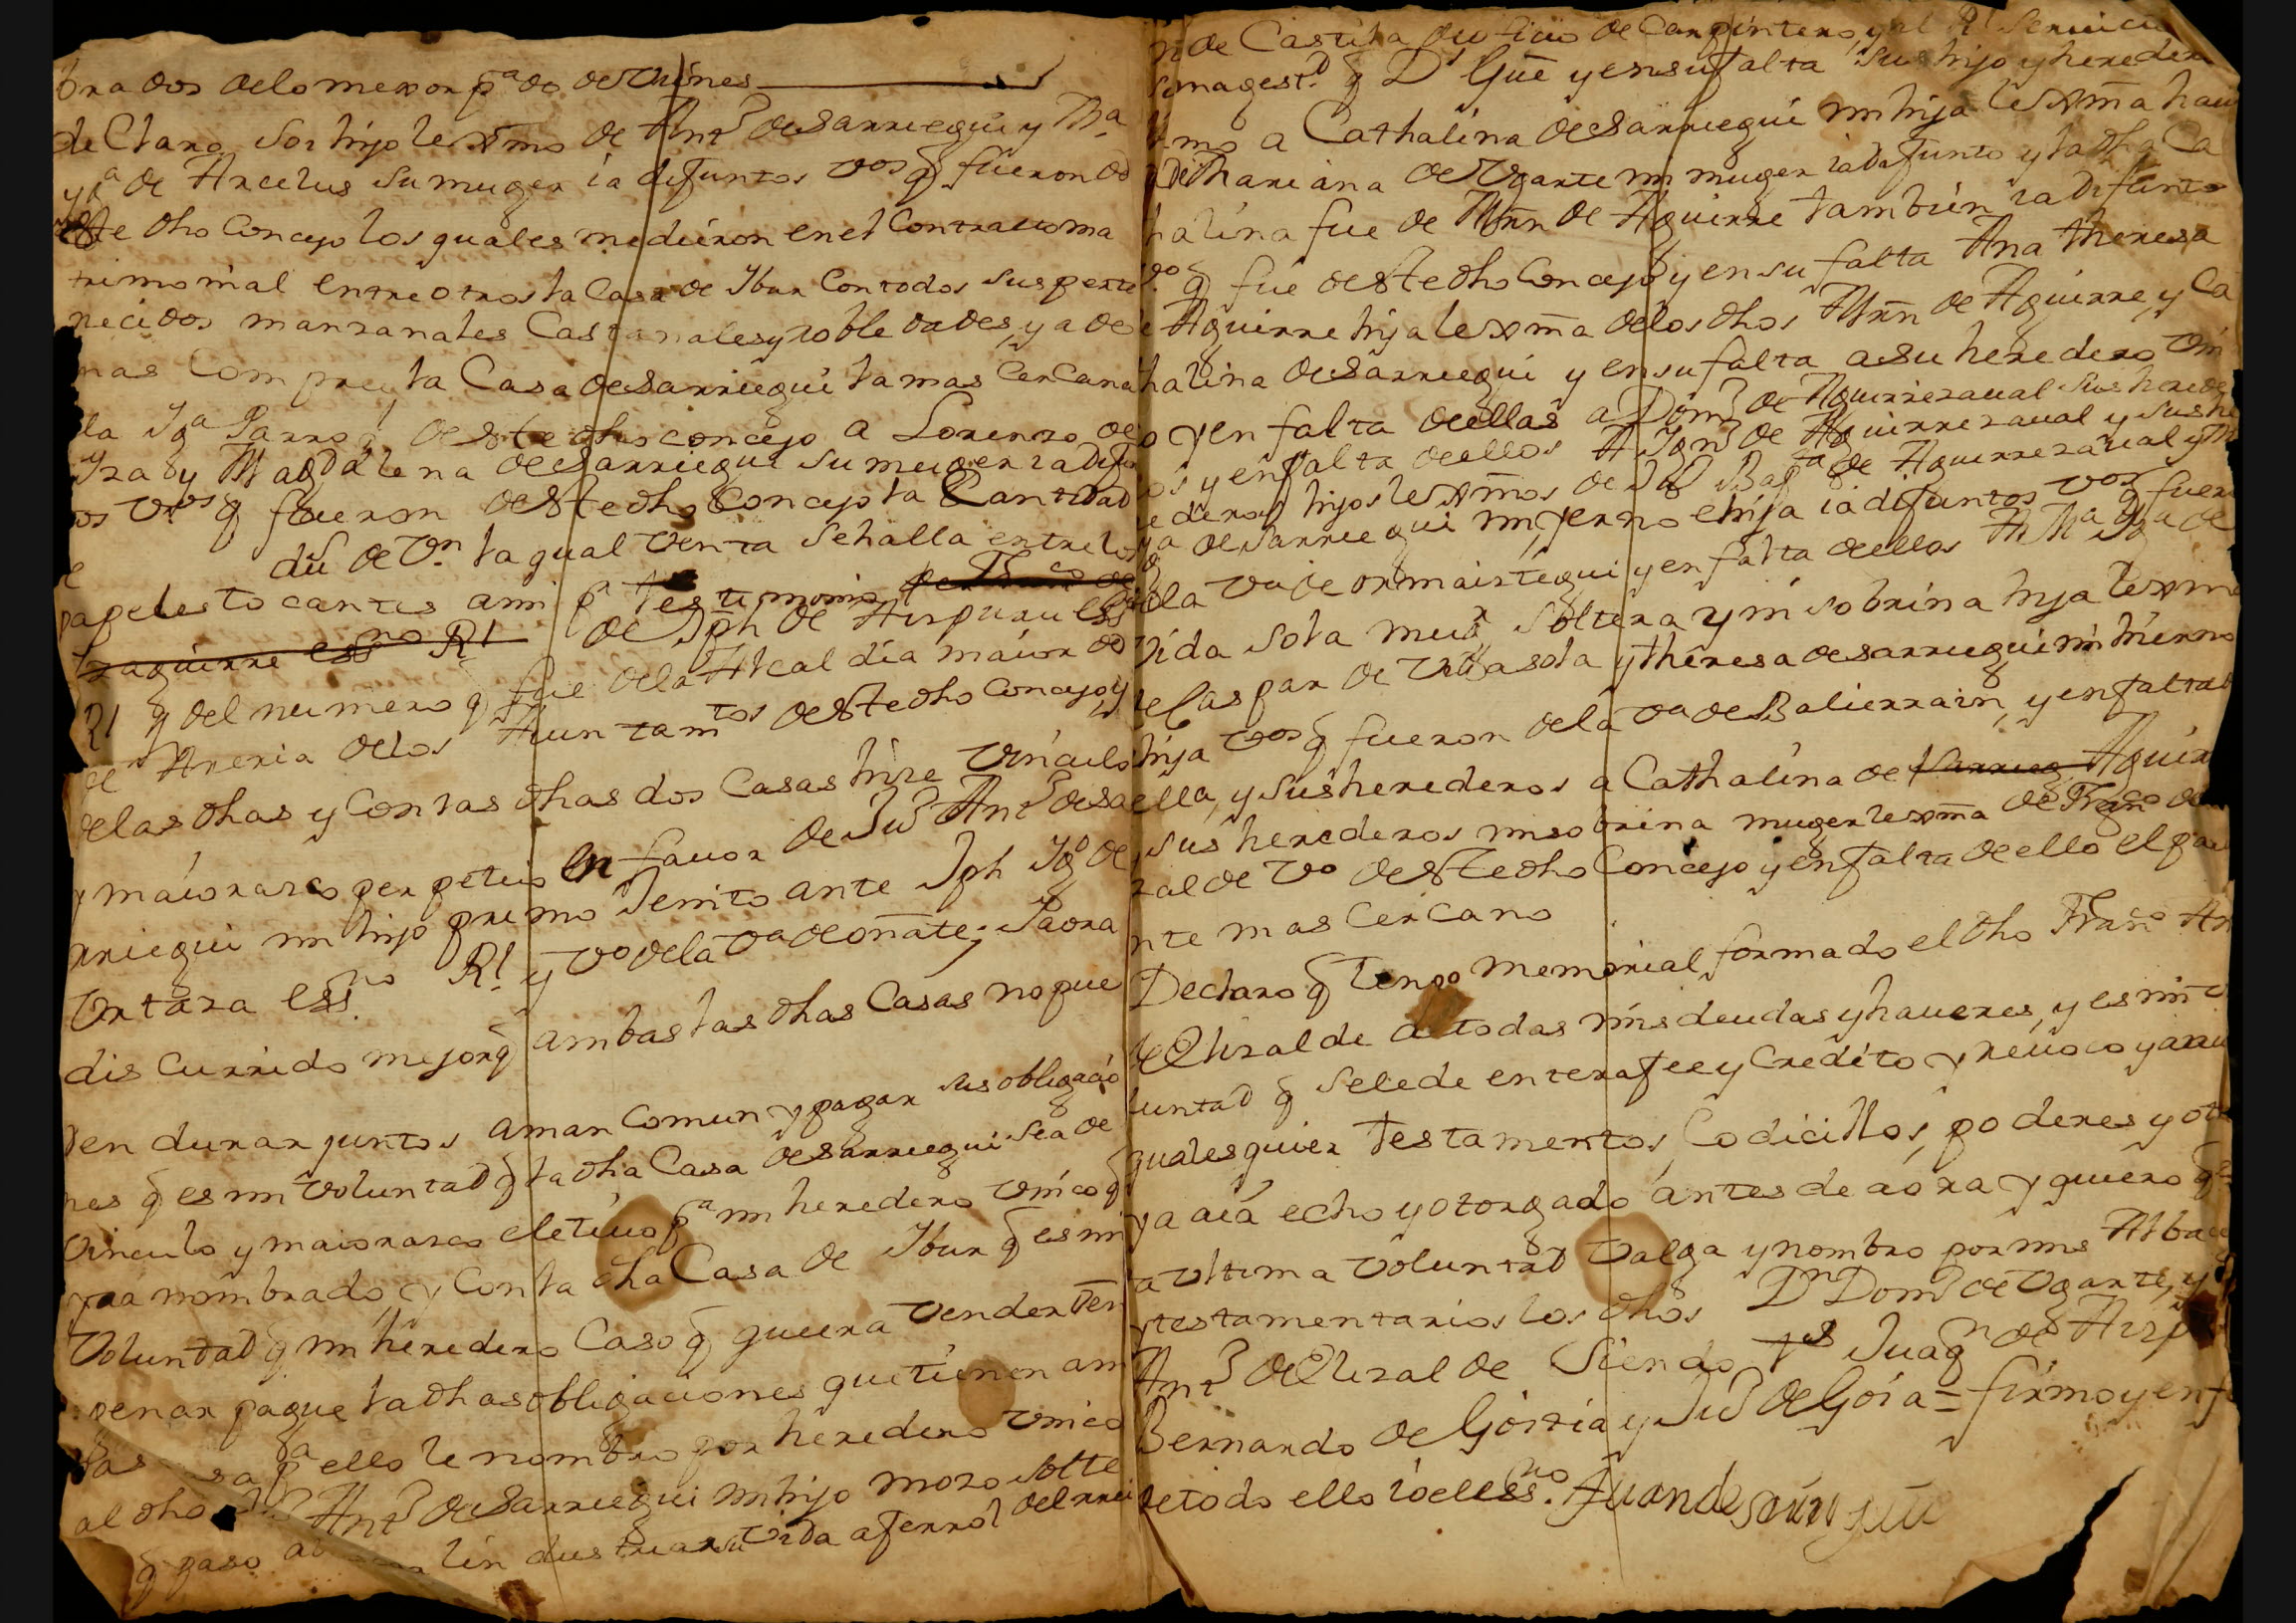 brados de lo mexor p.ª do de Vñes
de Claro Soi hijo lexmo de Antº de Sarriegui y Mª
yª de Arcelus su muger ia difuntos vºs q̃ fueron de
este dho Concejo los quales me dieron en el Contrato ma
trimonial entre otros la Casa de Ibur Con todos sus perte
necidos manzanales Castanales y robledades, y ade
mas Compre la Casa de Sarriegui la mas Cercana
la Igª Parroql de este dho concejo a Lorenzo de
y Magdalena de Sarriegui su muger ia difun
os vºs q̃ fueron deste dho Concejo la Cantidad
du de Vn. la qual Venta Sehalla entre los
papeles to cantes a mi pª testimonio
essno Rl de Jph de Aispuru ess
Rl y del numero q̃ fue de la Alcaldia maior de
de Areria de los Aiuntamtos deste dho Concejo, y
de las dhas y Con las dhas dos Casas hize Vinculo
y maiorazco perpetuo en favor de Juº Antº desa
rriegui mi hijo primo Jenito ante Jph Igº de
Vrtaza Essno Rl. y vº de la vª de oñate; Iaora
discurrido mejor q̃ ambas las dhas Casas no pue
den durar juntos aman Comun y pagar sus obligacio
nes q̃ es mi Voluntad q̃ la dha Casa de Sarriegui sea de
Vinculo y maiorazco eletivo pª mi heredero Vnico q̃
nombrado, y Con la dha Casa de Ibur q̃ es mi
Voluntad q̃ mi heredero Caso q̃ quiera Vender o en
penar pague la dhas obligaciones que tienen am
bas pª ello le nombro por heredero Vnico
al dho Juº Antº de Sarriegui mi hijo mozo solte
q̃ paso a industriar su Vida a ferrol del rrei
no de Castila oficio de Carpintero, y al Rl Servicio
Smagestd q̃ Ds Gue y en su falta Sus hijo y heredero
timo a Cathalina de Sarriegui mi hija lexma havi
de Mariana de Vgarte mi muger ia difunto y la dha Ca
halina fue de Mrn de Aguirre tambien ia difunto
vº q̃ fue deste dho Concejo y en su falta Ana theresa
de Aguirre hija lexma de los dhos Mrn de Aguirre, y Ca
thalina de Sarriegui y en su falta a su heredero Vni
o y en falta de ellas a Domº de Aguirrezaval Sus herede
ros y en falta de ellos A Ignº de Aguirrezaval y sus he
rederos hijos lexmos de Juº Bapta de Aguirrezaval y M
de Sarriegui mi Jerno e hija ia difuntos vºs q̃ fuero
de la vª de ormaiztegui y en falta de ellos A Mª Igª de
Vida Sola mugr Soltera y mi sobrina hija lexma
de Gaspar de Vidasola y theresa de sarriegui mi hierno
hija vºs q̃ fueron de la vª de Balierrain, y en falta de
ella, y sus herederos a Cathalina de Aguir
sus herederos mi sobrina muger lexma de Franco de
zal de vº deste dho Concejo y en falta de ello el pari
nte mas Cercano
Declaro q̃ tengo memorial formado el dho Franco An
de Elizalde de todas mis deudas y haveres, y es mi vo
luntad q̃ Selede entera fee y Credito y revoco y anu
qualesquier testamentos, Codicillos, poderes y otr
ya aia echo y otorgado antes de aora y quiero q̃
a Vltima Voluntad Valga y nombro por mis Albace
y testamentarios los dhos Dn Domº de Vgarte, y
Antº de Elizalde Siendo tgs Juaqn de Aizp
Bernardo de Goitia y Juº de Goia = firmo y en fe
de todo ello io el essno. Juan de